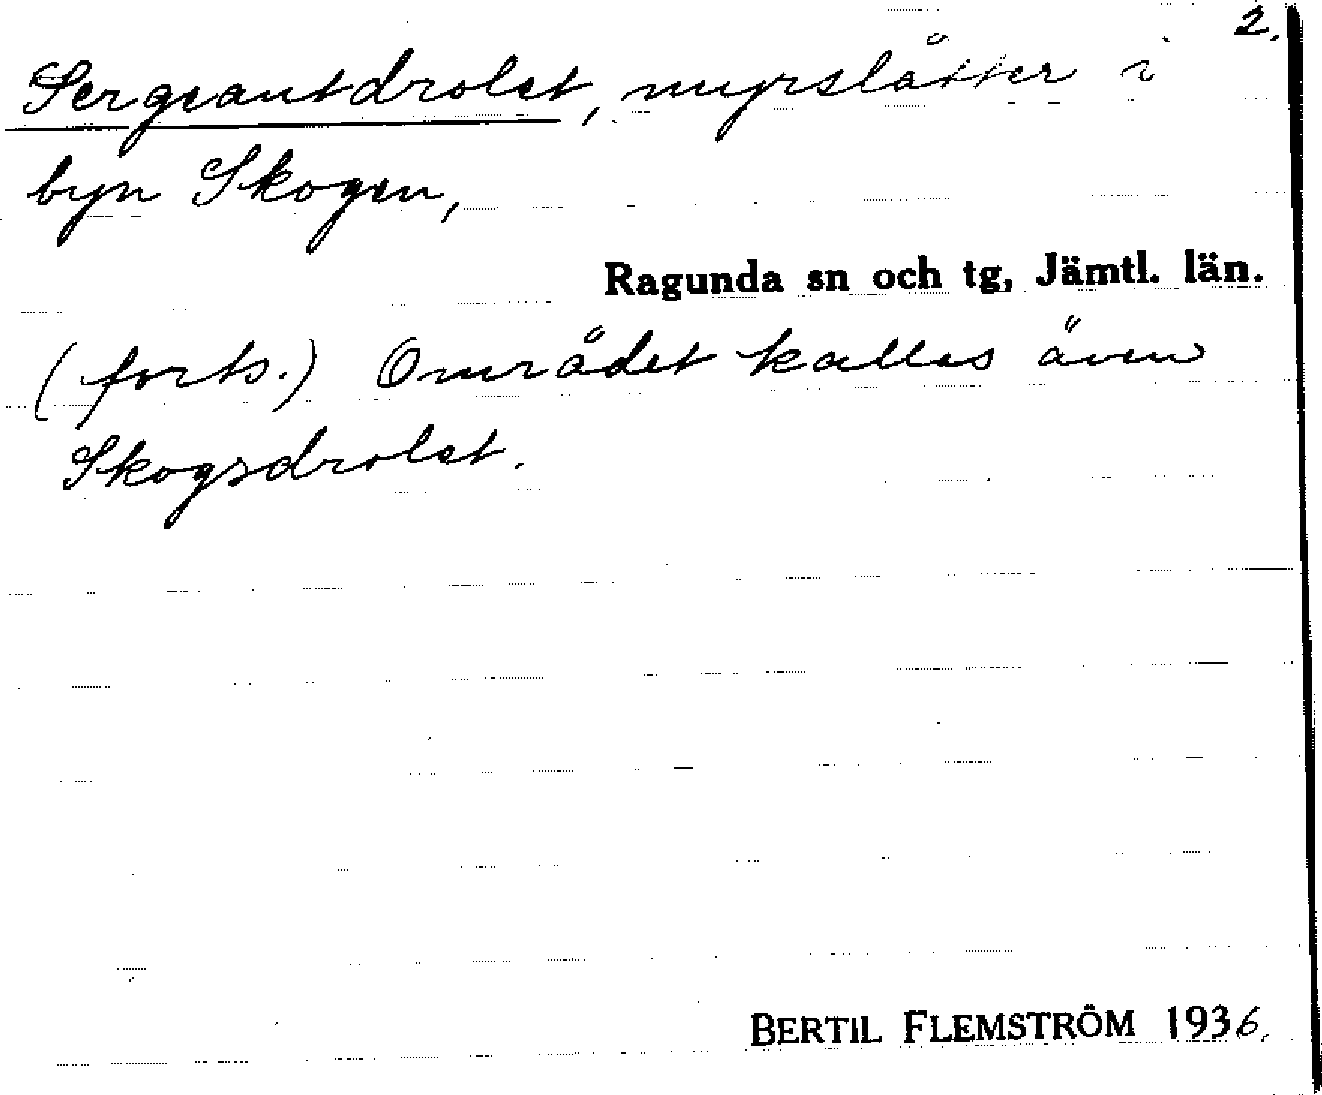 2.
Sergeantdrolet, myrslåtter i
byn Skogen,
Ragunda sn och tg, Jämtl. län.
(forts.) Området kallas även
Skogsdrolet.
BERTIL FLEMSTRÖM 1936.